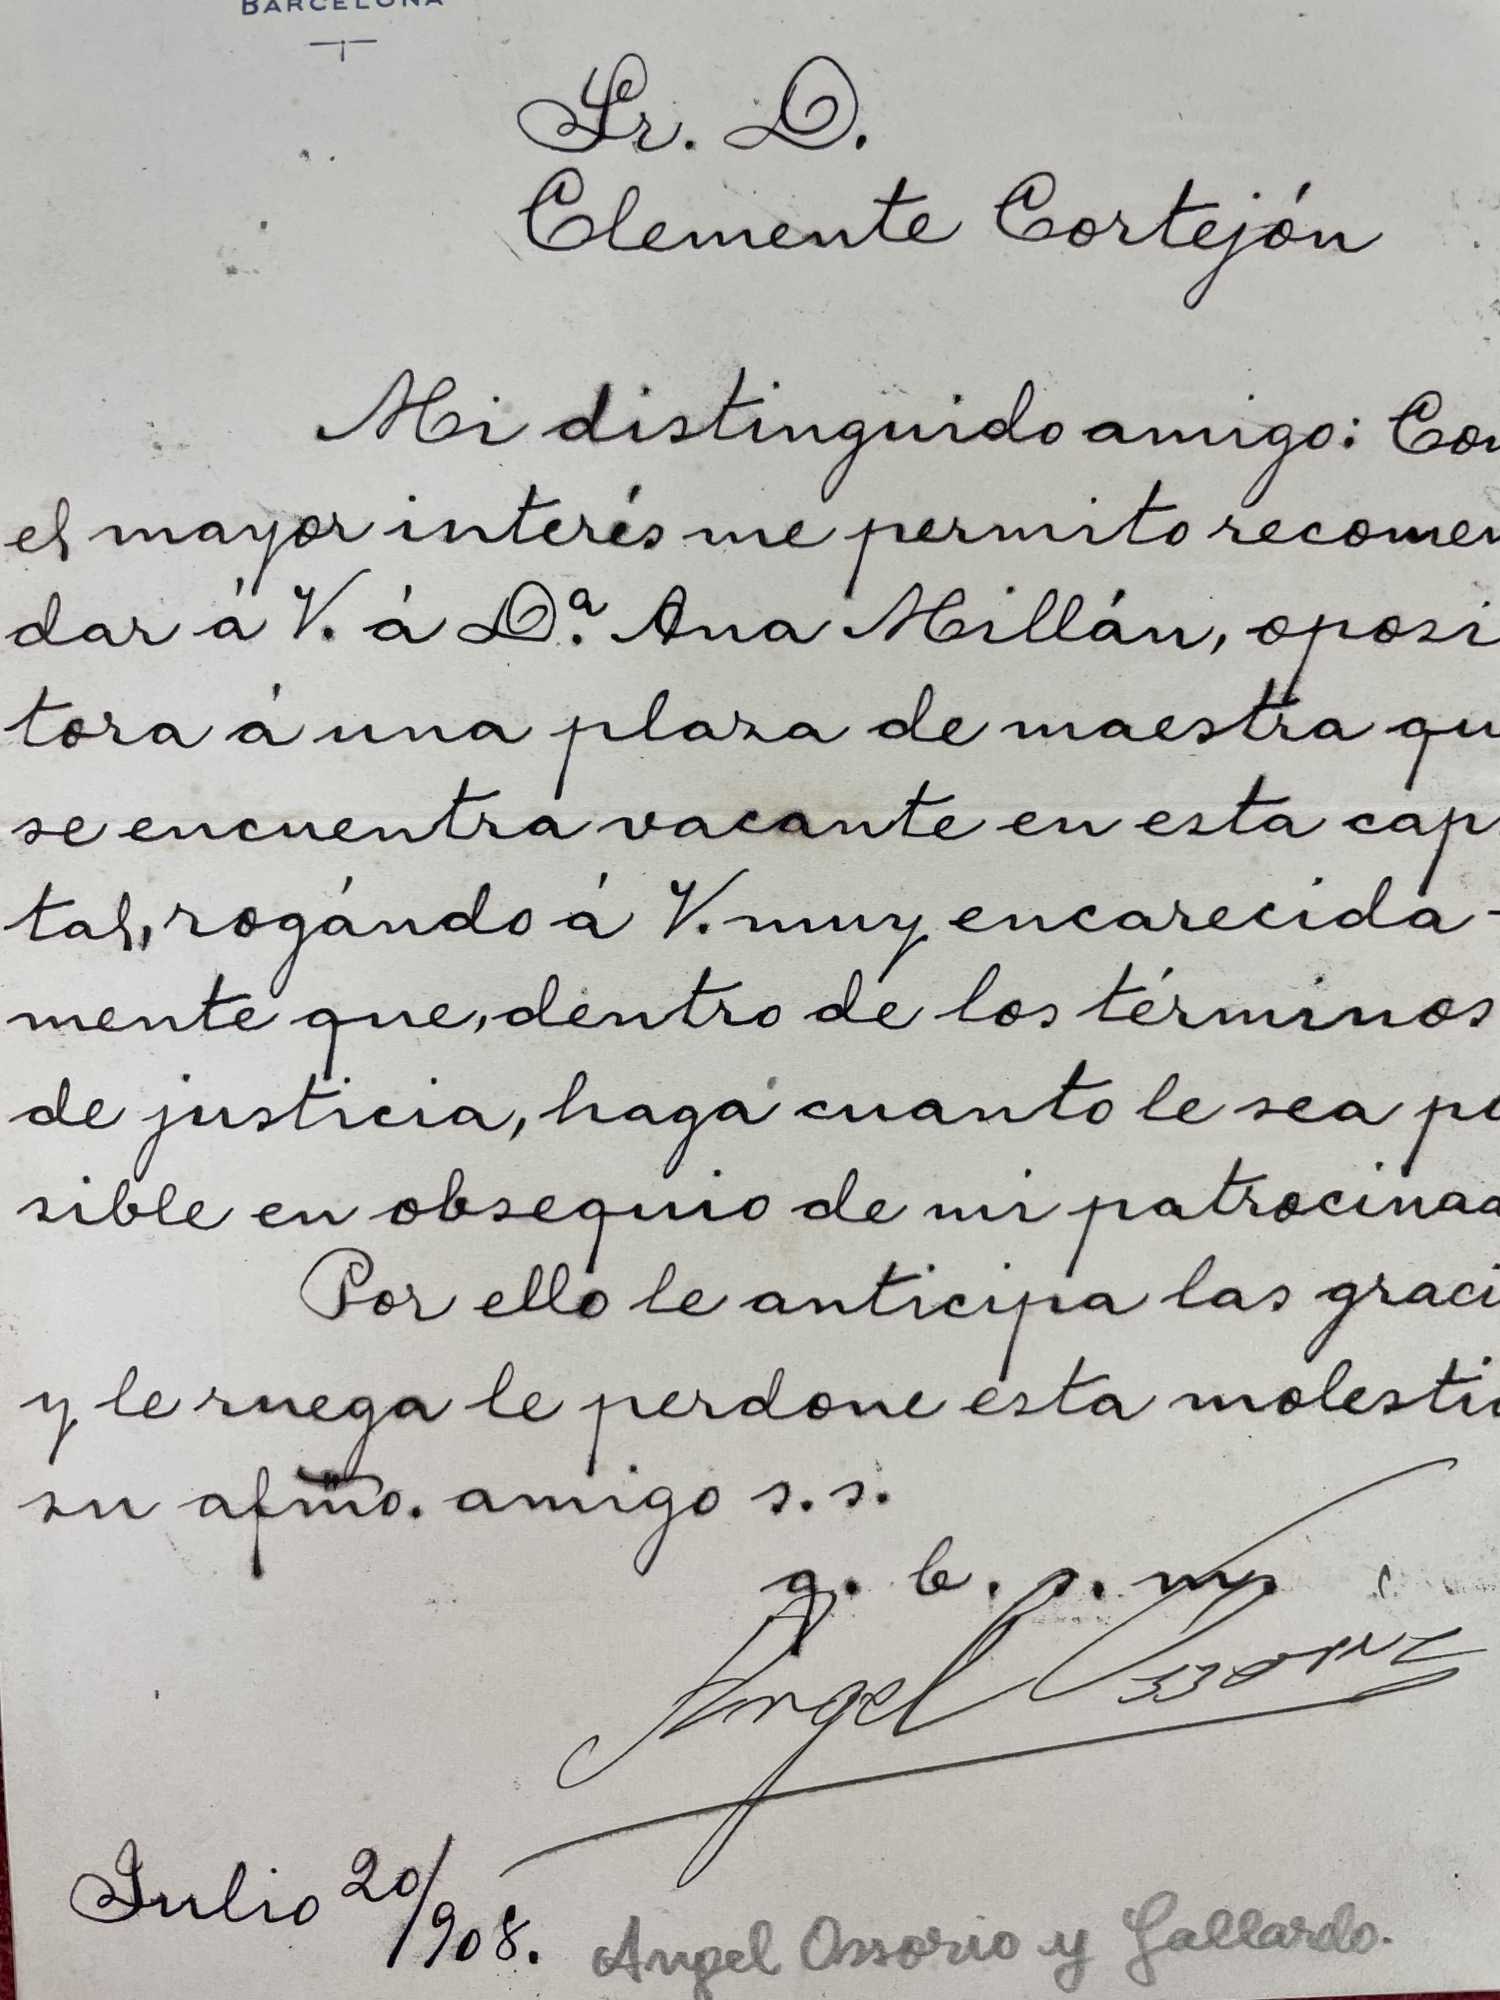 BARCELONA
Sr. D.
Clemente Cortejón
Mi distinguido amigo: Con
el mayor interés me permito recomen
dar á V. á D.ª Ana Millán, oposi
tora á una plaza de maestra qu
se encuentra vacante en esta capi
tal, rogándo á V. muy encarecida-
mente que, dentro de los términos
de justicia, haga cuanto le sea po
sible en obsequio de mi patrocinad
Por ello le anticipa las graci
y le ruega le perdone esta molesti
su afmo. amigo s. s.
q. b. s. m.
Angel Ossorio
Julio 20/908.
Angel Ossorio y Gallardo.